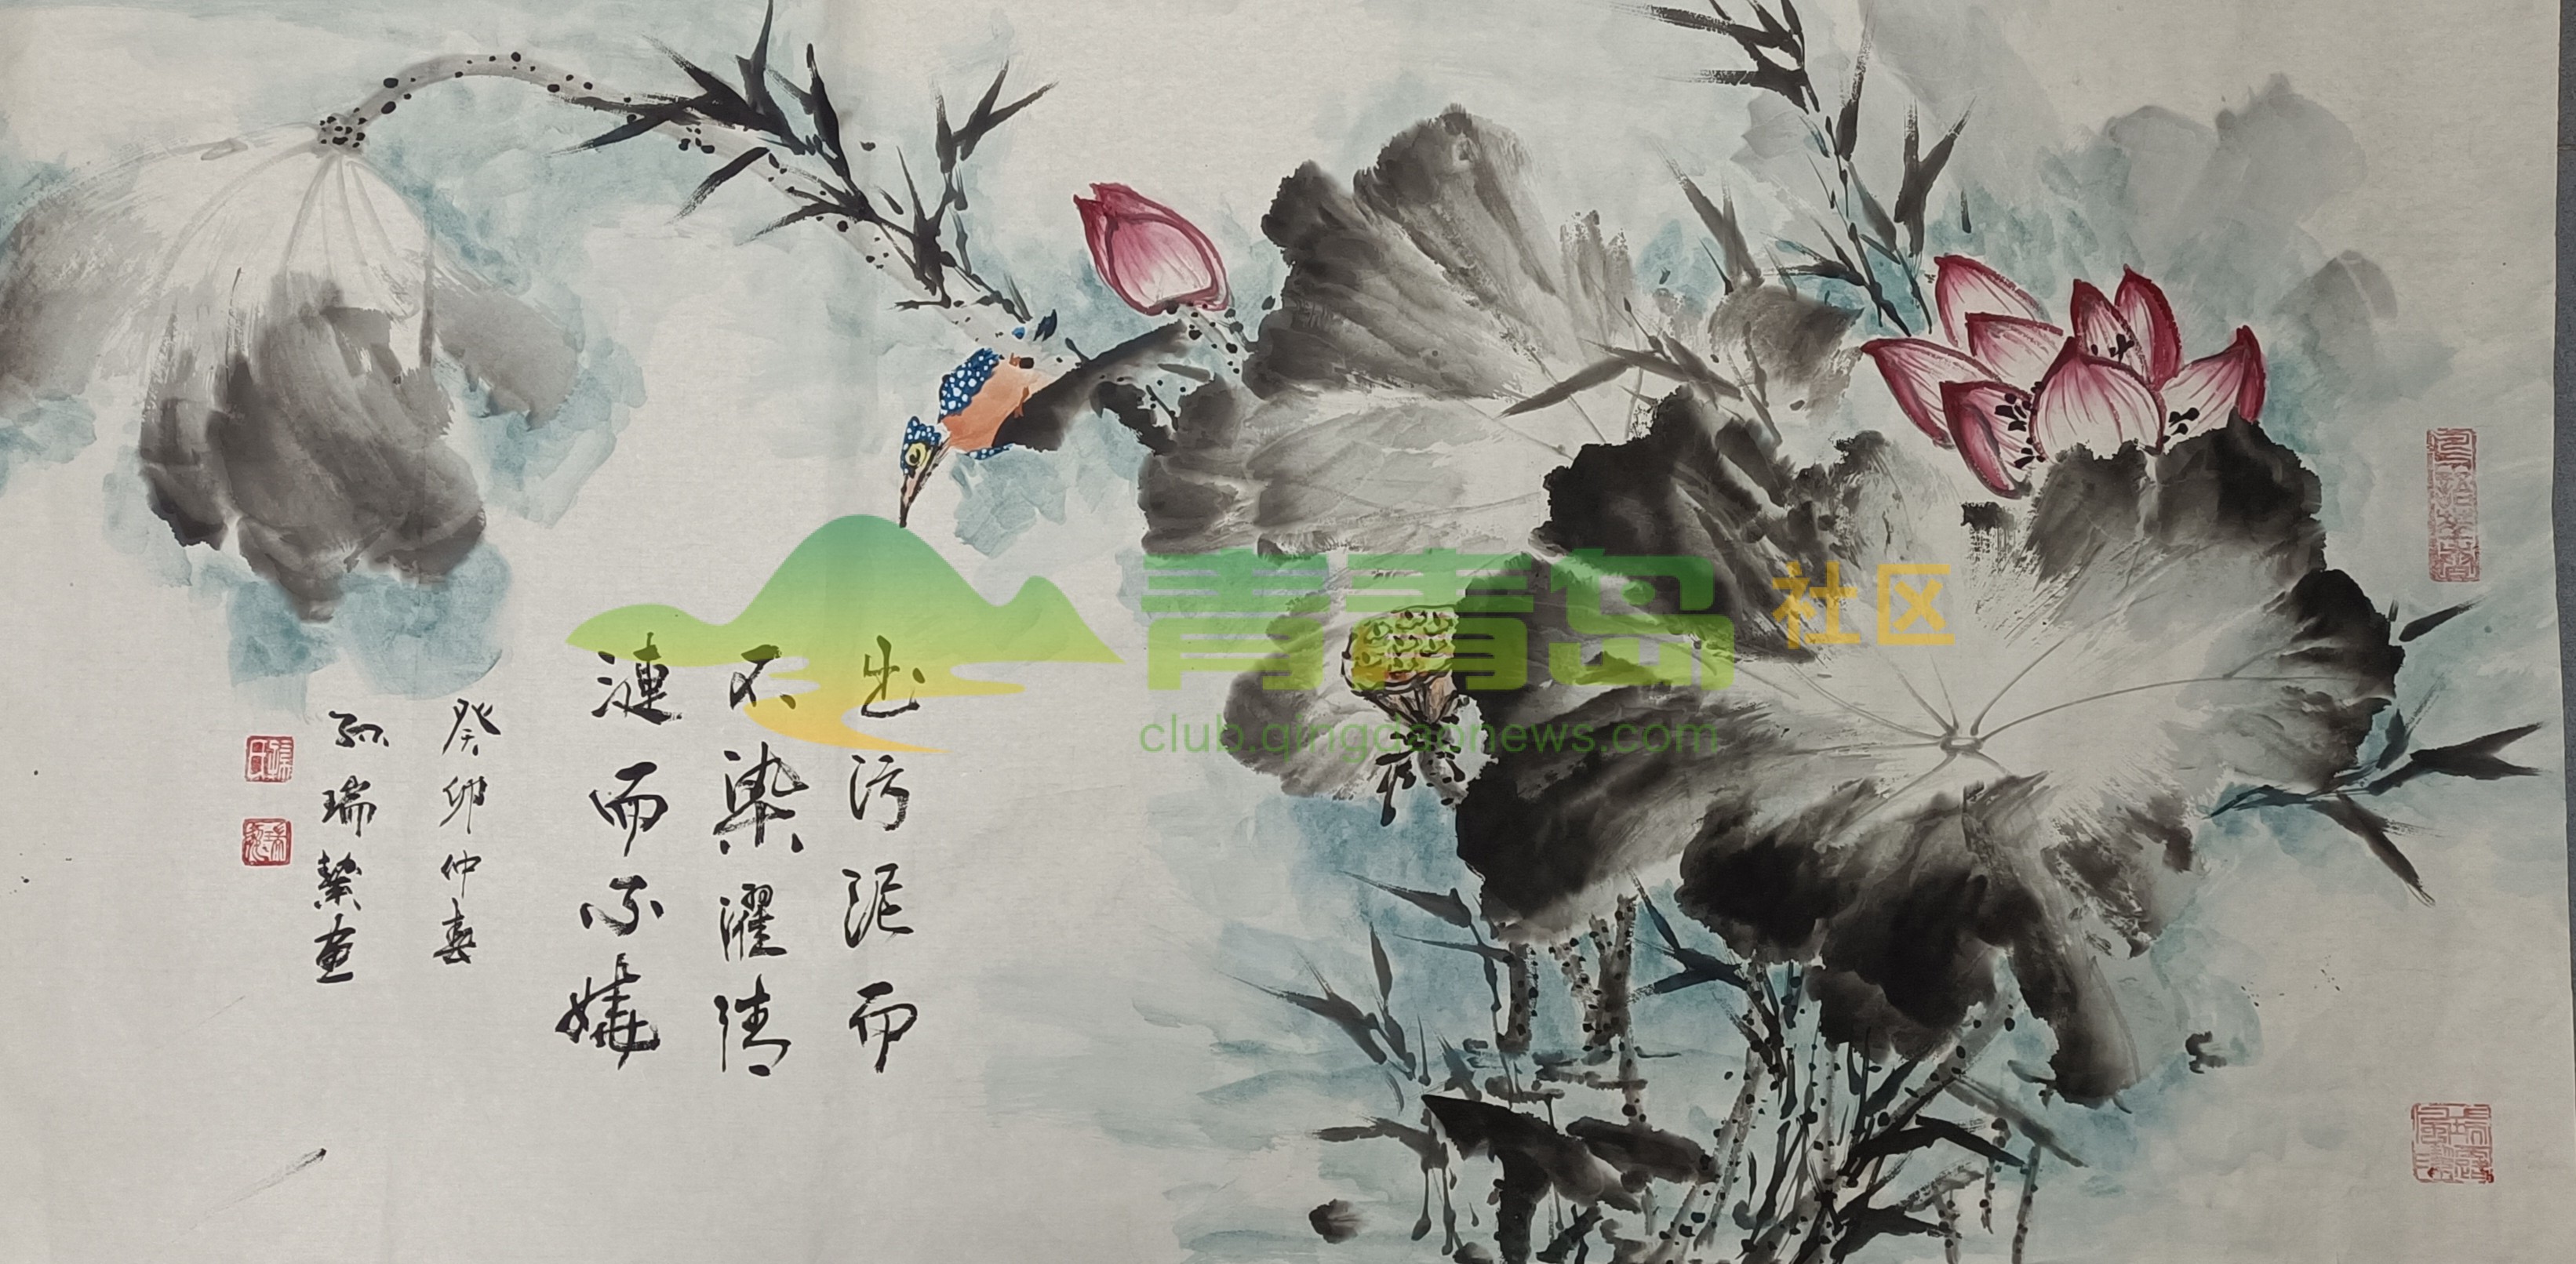 出污泥而
不染濯清
漣而不嬈
癸卯仲春
孙瑞絜画
青青岛 社区
club.qingdaonews.com